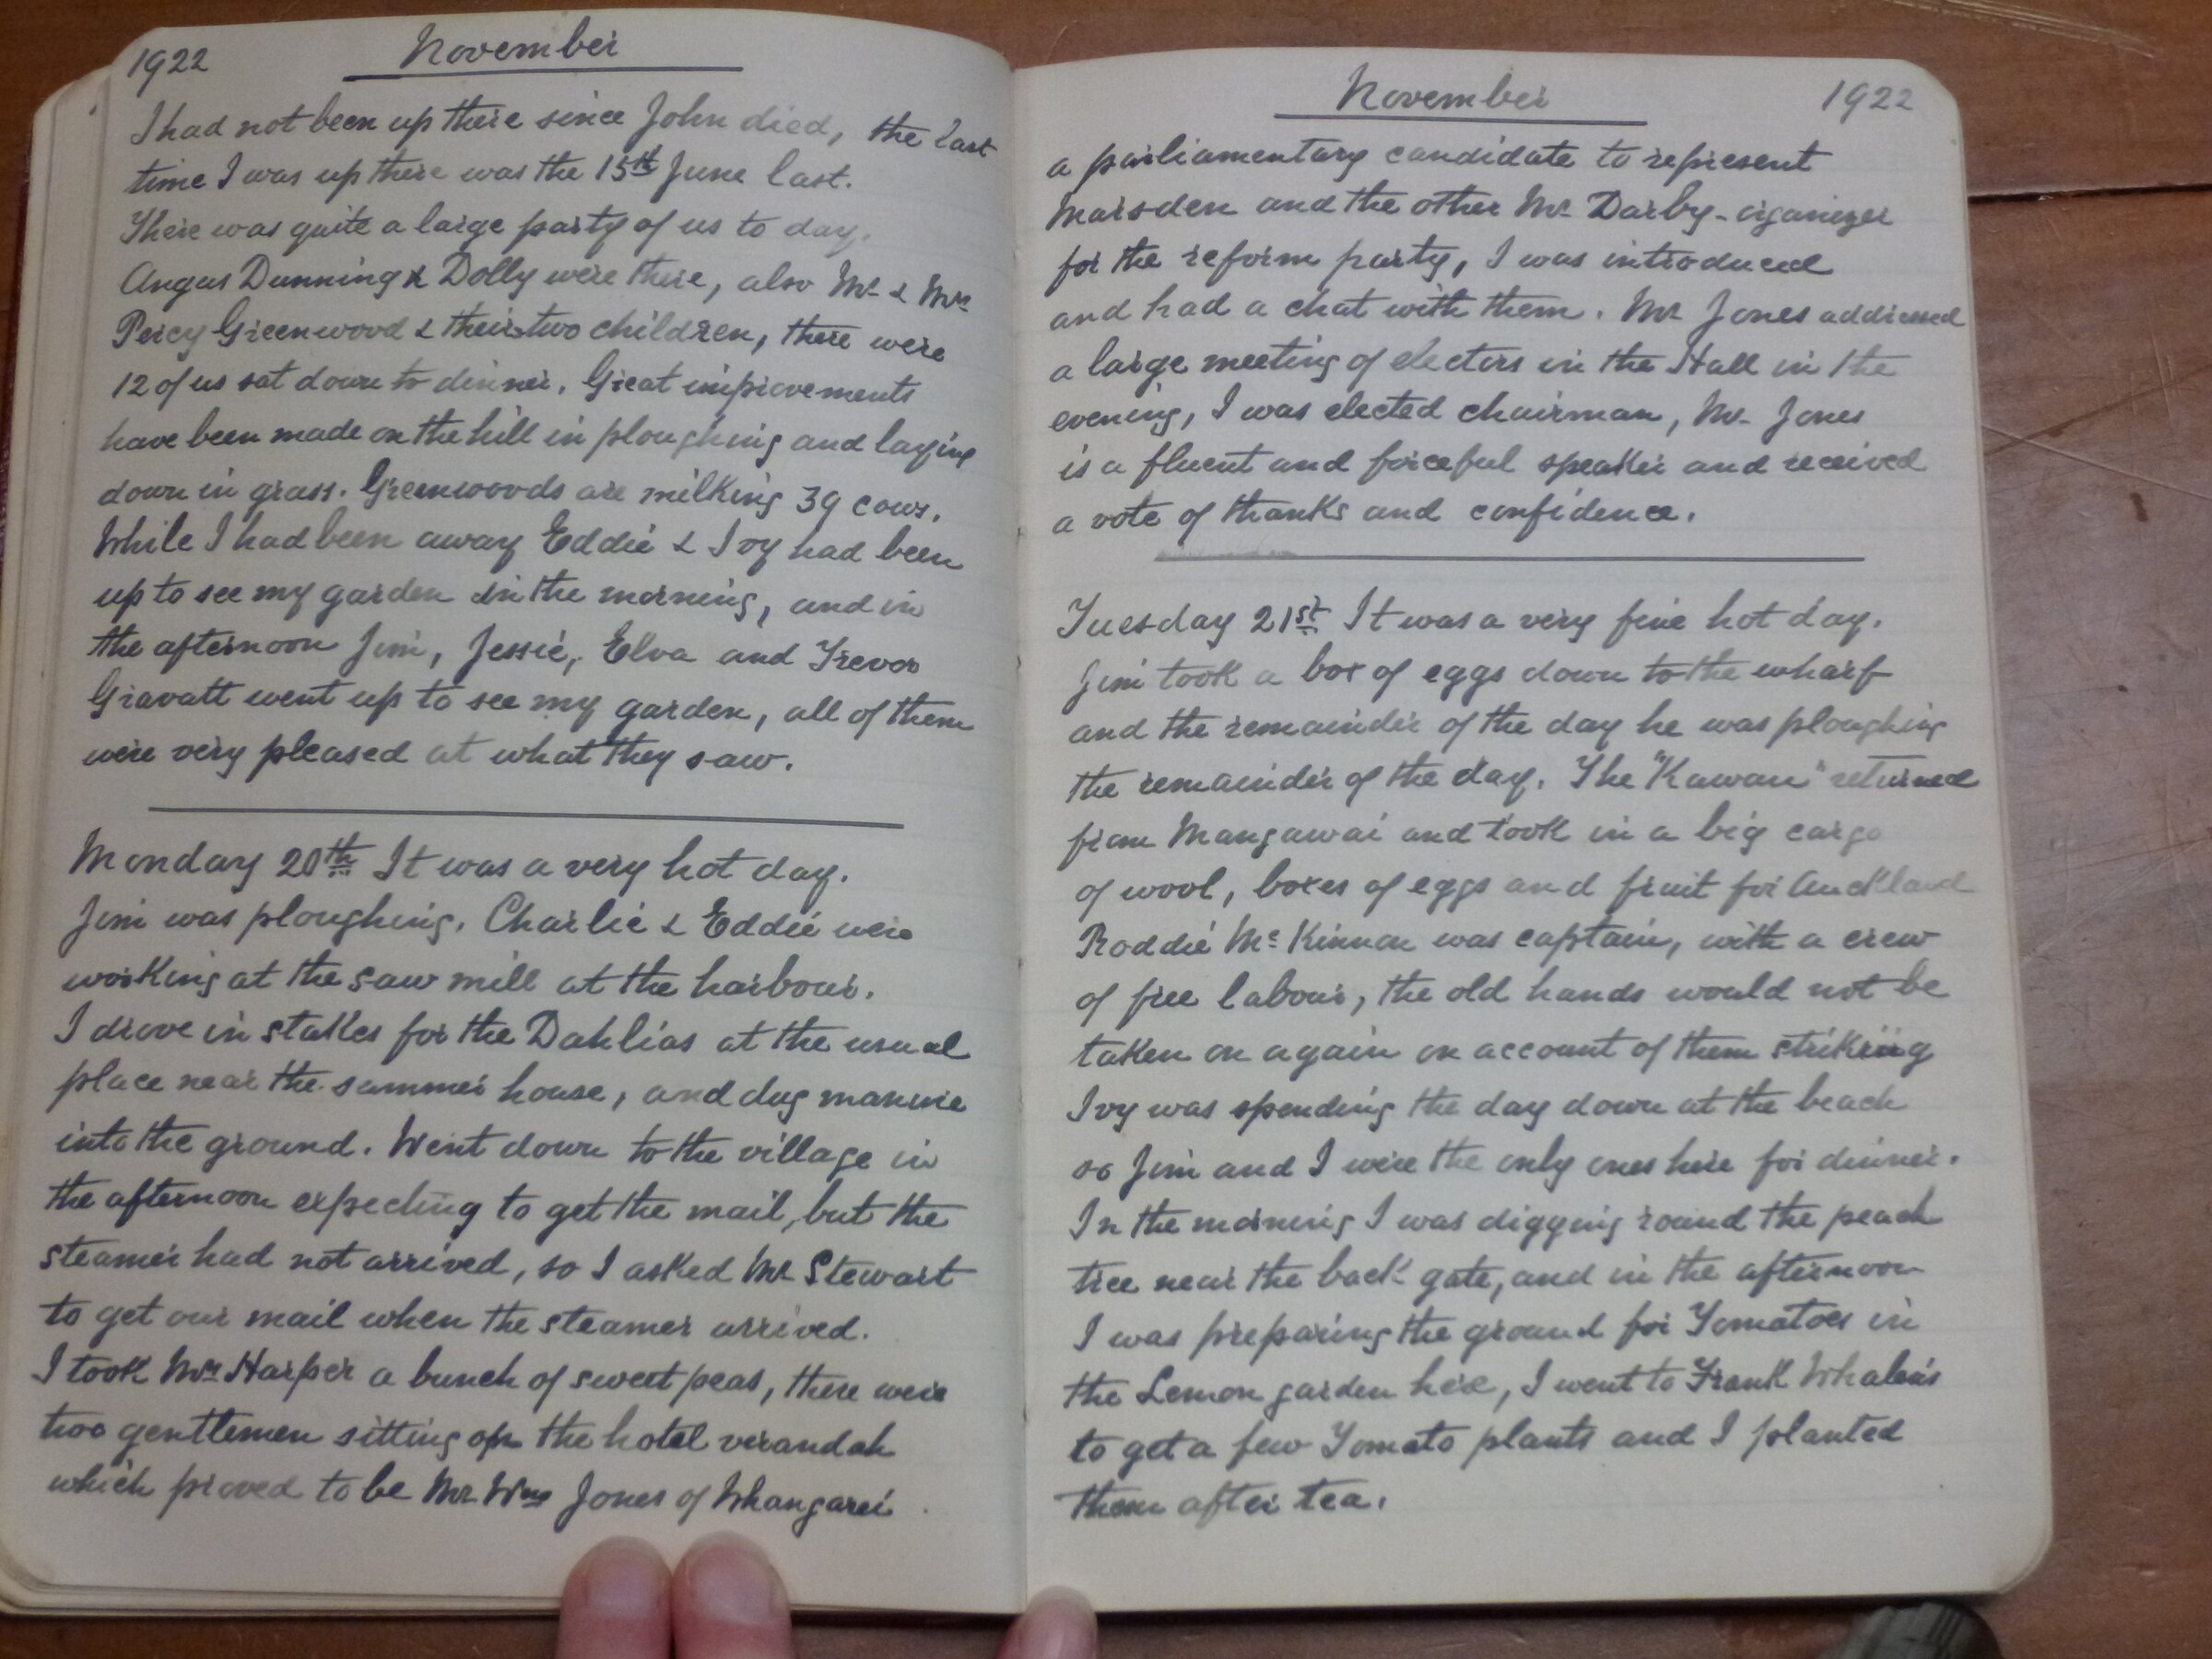 1922 November
I had not been up there since John died, the last
time I was up there was the 15th June last.
There was quite a large party of us to day.
Angus Dunning & Dolly were there, also Mr & Mrs
Percy Greenwood & their two children, there were
12 of us sat down to dinner. Great improvements
have been made on the hill in ploughing and laying
down in grass. Greenwoods are milking 39 cows.
While I had been away Eddie & Ivy had been
up to see my garden in the morning, and in
the afternoon Jim, Jessie, Elva and Trevor
Gravatt went up to see my garden, all of them
were very pleased at what they saw.
Monday 20th It was a very hot day.
Jim was ploughing. Charlie & Eddie were
working at the saw mill at the harbour.
I drove in stakes for the Dahlias at the usual
place near the summer house, and dug manure
into the ground. Went down to the village in
the afternoon expecting to get the mail, but the
steamer had not arrived, so I asked Mr Stewart
to get our mail when the steamer arrived.
I took Mrs Harper a bunch of sweet peas, there were
two gentlemen sitting on the hotel verandah
which proved to be Mr Wm Jones of Whangarei
November 1922
a parliamentary candidate to represent
Marsden and the other Mr Darby - organizer
for the reform party, I was introduced
and had a chat with them. Mr Jones addressed
a large meeting of electors in the Hall in the
evening, I was elected chairman, Mr. Jones
is a fluent and forceful speaker and received
a vote of thanks and confidence.
Tuesday 21st It was a very fine hot day.
Jim took a box of eggs down to the wharf
and the remainder of the day he was ploughing
the remainder of the day. The "Kawau" returned
from Mangawai and took in a big cargo
of wool, boxes of eggs and fruit for Auckland
Roddie McKinnon was captain, with a crew
of free labour, the old hands would not be
taken on again on account of them striking
Ivy was spending the day down at the beach
so Jim and I were the only ones here for dinner.
In the morning I was digging round the peach
tree near the back gate, and in the afternoon
I was preparing the ground for Tomatoes in
the Lemon garden here, I went to Frank Whalen's
to get a few Tomato plants and I planted
them after tea.